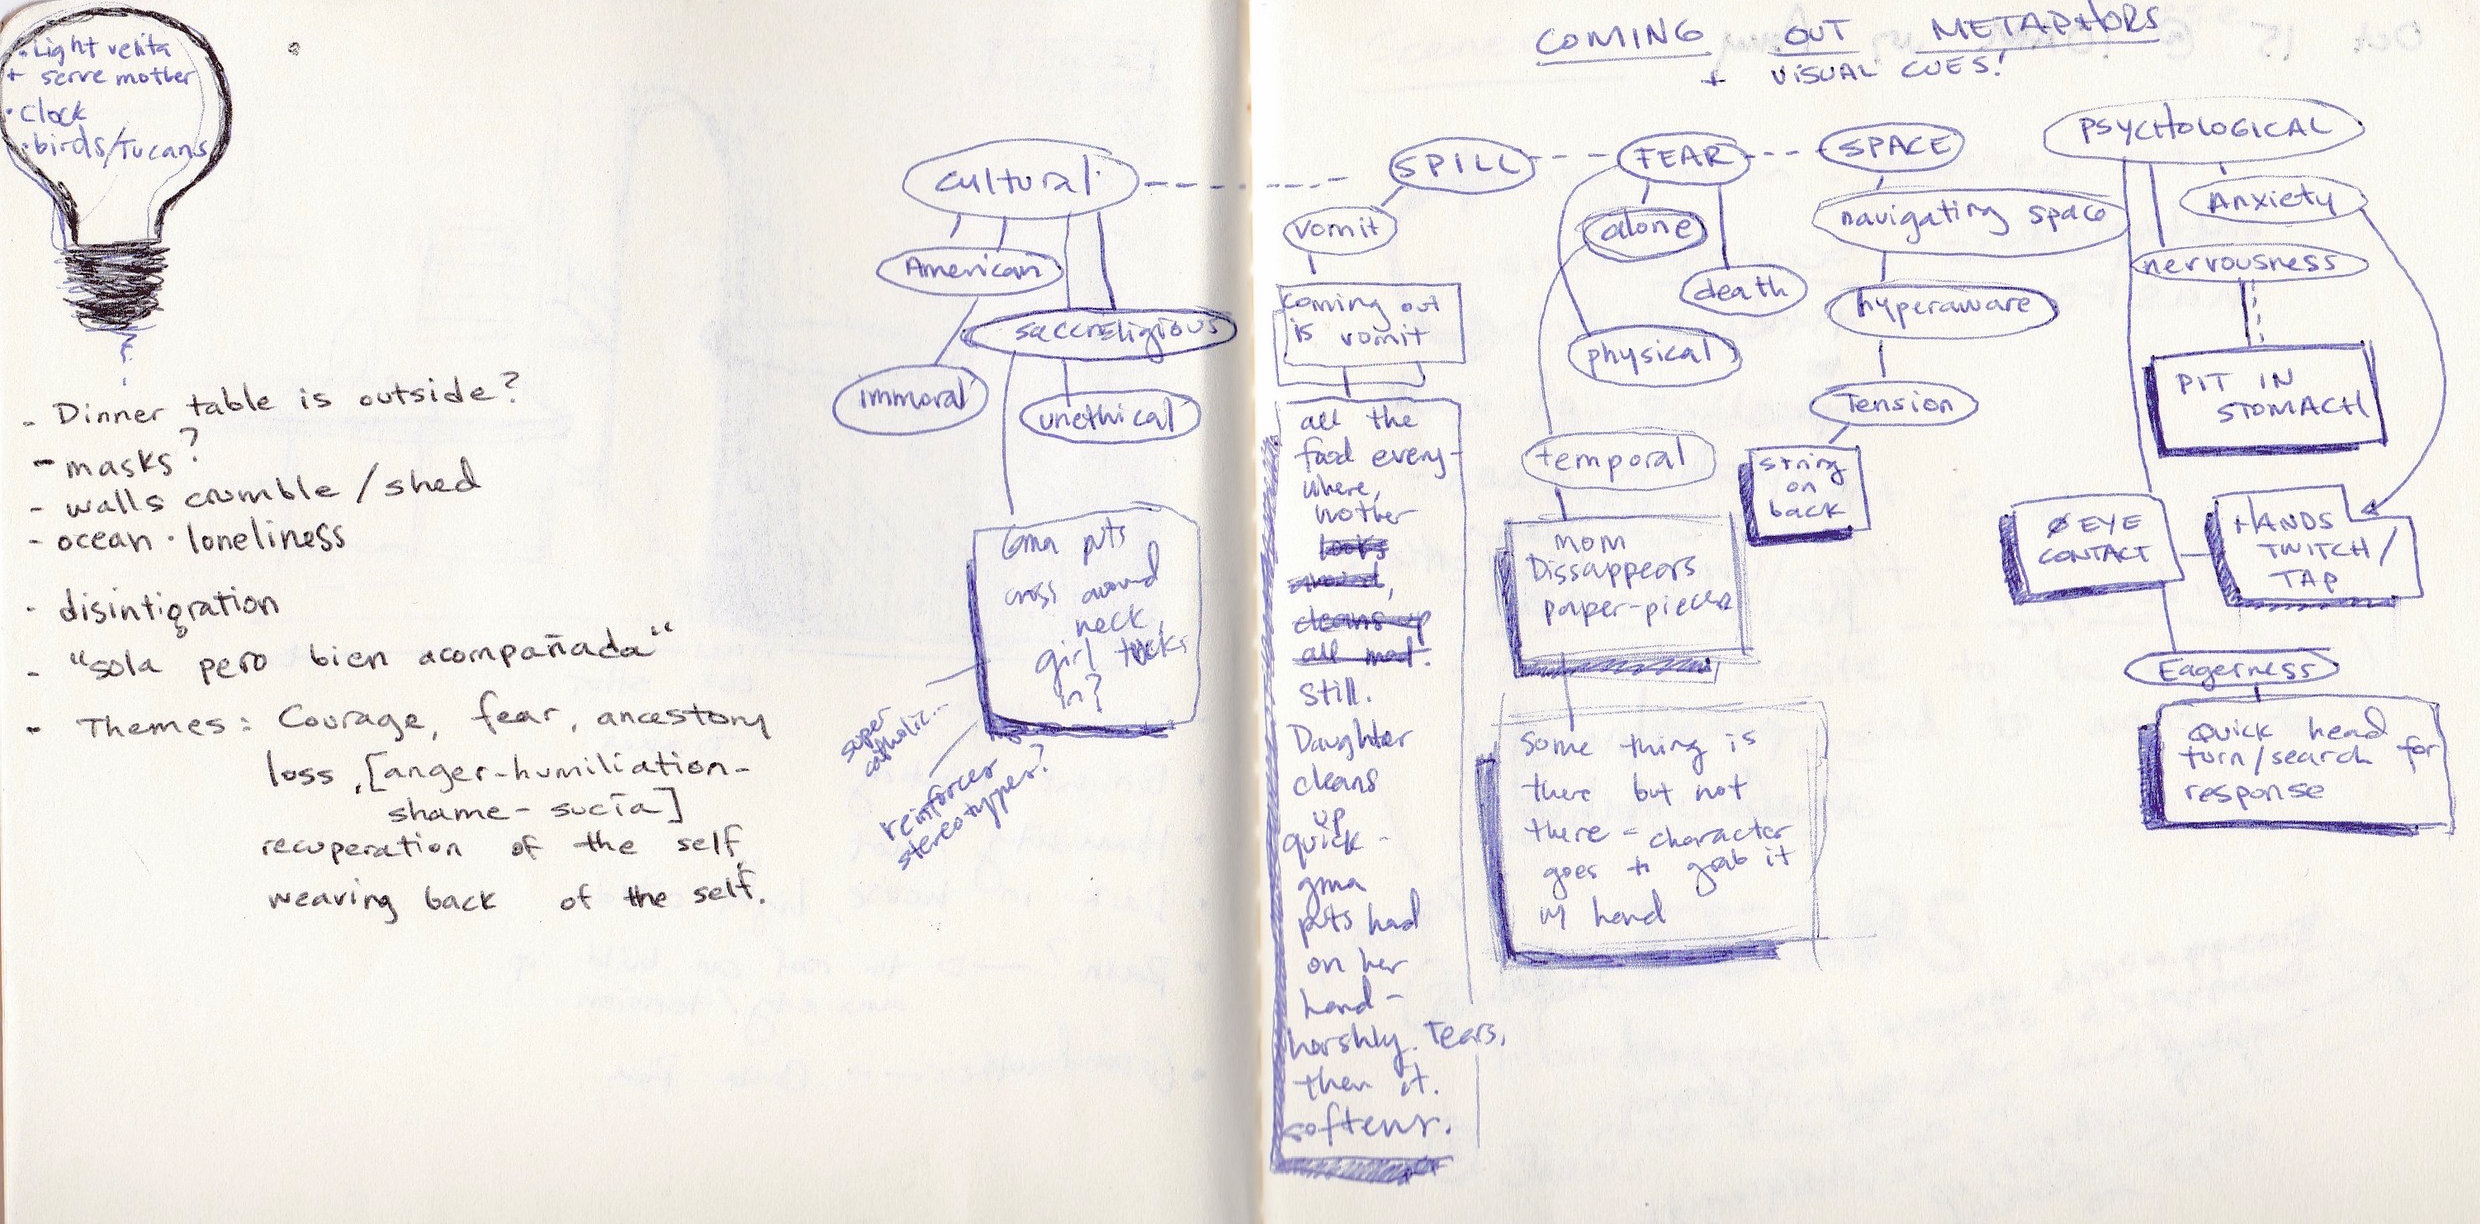 • Light velita
+ serve mother
• clock
• birds/Tucans
- Dinner table is outside?
- masks?
- walls crumble/shed
- ocean · loneliness
- disintigration
- "sola pero bien acompañada"
- Themes: Courage, fear, ancestory
loss, [anger-humiliation-
shame - sucía]
recuperation of the self
weaving back of the self.
cultural
American
saccreligious
immoral
unethical
Gma puts
cross around
neck,
girl tucks
in?
super
catholic...
reinforces
stereotypes?
COMING OUT METAPHORS
+ VISUAL CUES!
SPILL
vomit
coming out
is vomit
all the
food every-
where,
mother
looks
cleans up
all mad.
still.
Daughter
cleans
up
quick -
gma
puts had
on her
hand -
harshly. Tears,
then it.
softens.
FEAR
alone
death
physical
temporal
mom
Dissappears
paper-pieces
Some thing is
there but not
there = character
goes to grab it
w/ hand
SPACE
navigating space
hyperaware
Tension
string
on
back
PSYCHOLOGICAL
Anxiety
nervousness
PIT IN
STOMACH
Ø EYE
CONTACT
HANDS
TWITCH/
TAP
Eagerness
Quick head
turn/search for
response